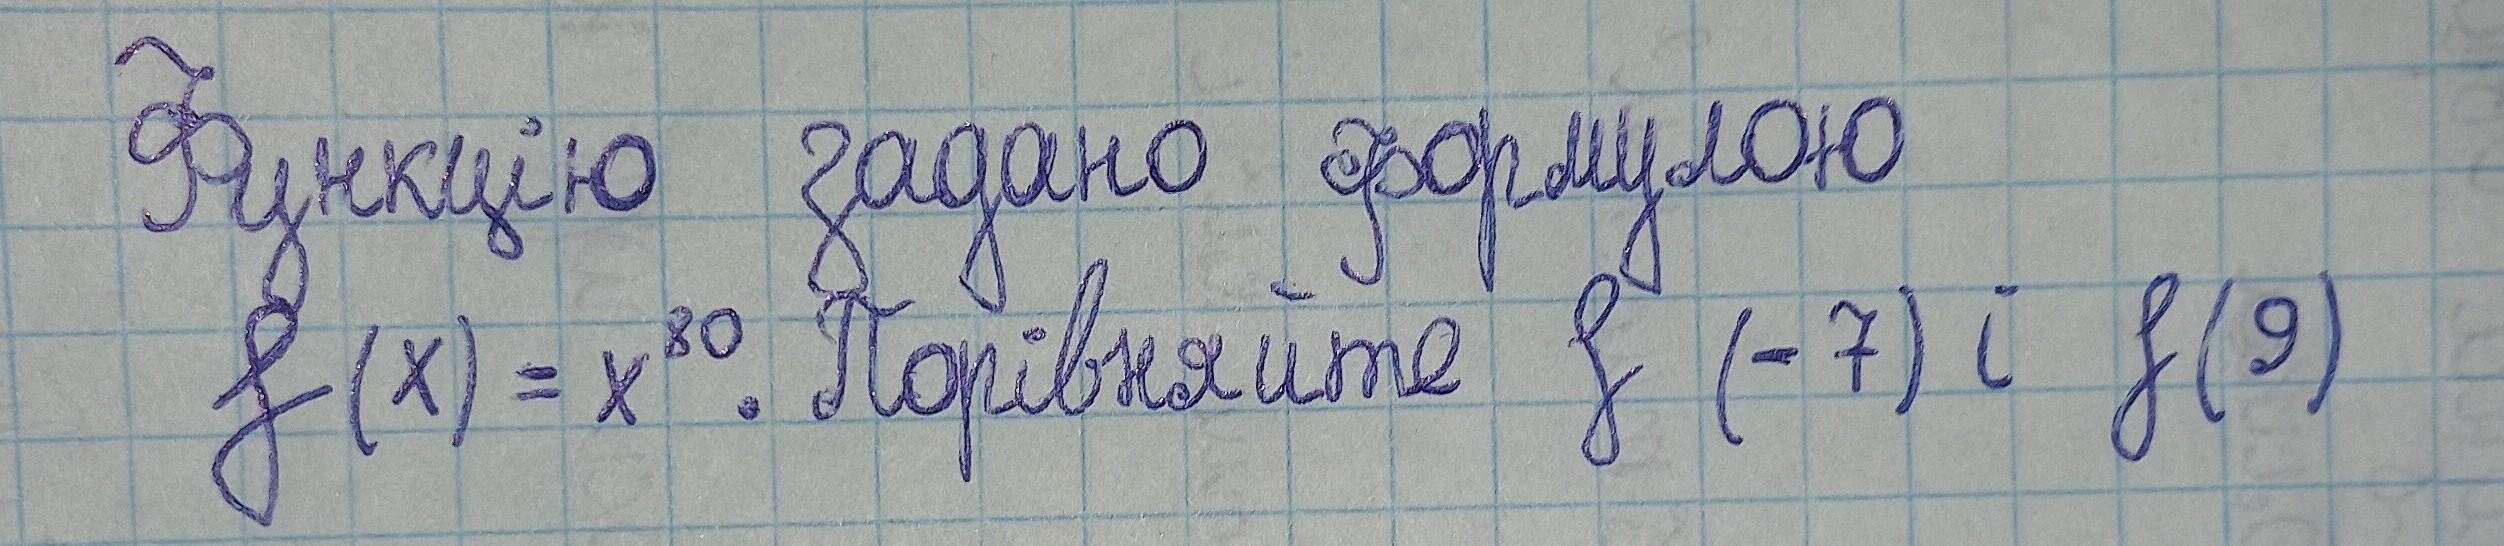 Функцію задано формулою
f(x) = x³⁰. Порівняйте f (-7) і f(9)